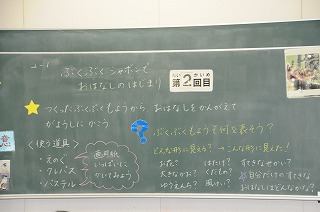 ぶくぶくシャボンで
おはなしのはじまり
だい かいめ
第2回目
つくったぶくぶくもようから おはなしをかんがえて
がようしに かこう
ぶくぶくもようで何を表そう?
どんな形に見える? → こんな形に見えた!
〈使う道具〉
・えのぐ
・クレパス
・パステル
画用紙
いっぱいに
かいてみよう
おだ?
はたけ?
すてきなせかい?
大きなかお?
くだもの?
ゆうえんち?
風けい?
☆自分だけのすてきな
おはなしはどんなかな?